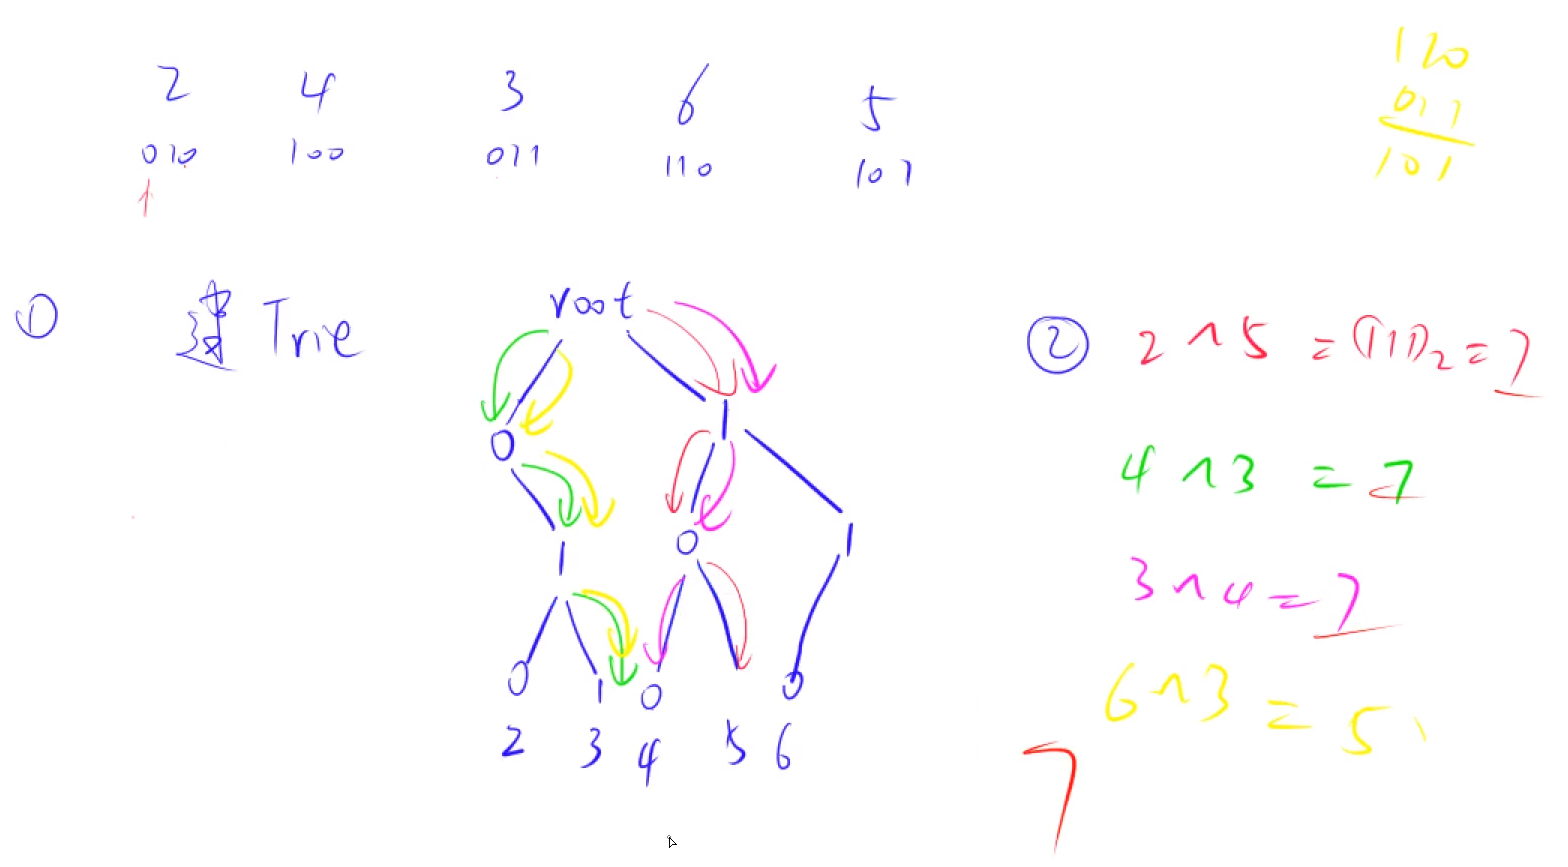 2 4 3 6 5
010 100 011 110 101
1
110
011
101
① 建 Trie
root
0 1
1 0 1
0 1 0 0
2 3 4 5 6
② 2 ^ 5 = (111)₂ = 7
4 ^ 3 = 7
3 ^ 4 = 7
6 ^ 3 = 5
7